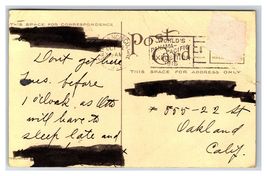 THIS SPACE FOR CORRESPONDENCE
Post Card
WORLD'S
PANAMA-PACIFIC
1915
THIS SPACE FOR ADDRESS ONLY
Don't get here
Tues. before
1 o'clock, as
will have to
sleep late and
# 855-22 St
Oakland
Calif.